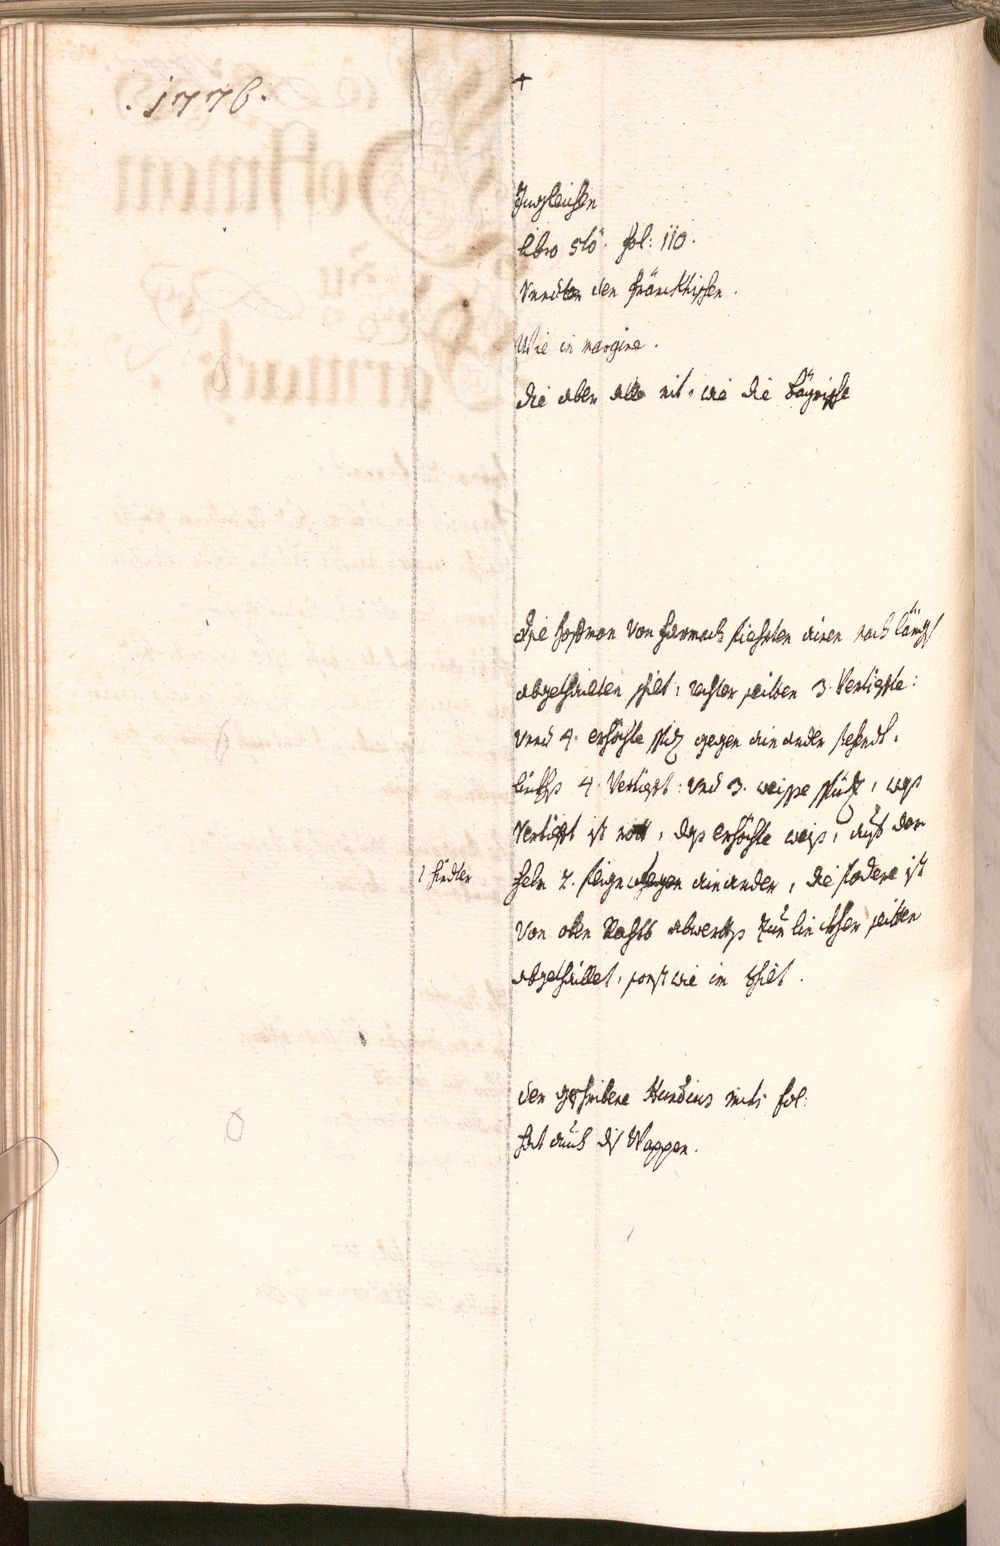 . 1776 .
+
Jngleichen
libro 5to. fol: 110.
Vnndter den fränckhischen.
Wie in margine.
die aber alle nit, wie die Bayrische
Die Hofman von Farmach fiehrten ainen nach längst
abgethailten schilt, rechter seitten 3. Vertiefte:
vnnd 4. erhöchte spiz gegen ain ander sehendt,
linckhs 4. Vertieft: vnd 3. weisse spüz, was
Vertiefft ist rott, das erhöchte weis, auf dem
2 hindter
helm 2. flign gegen ainander, die fodere ist
Von oben Rechts abwerths zur linckhen seitten
abgethaillet, sonst wie im Schilt.
der geschribene Hundius mihi fol:
hat auch dis Wappen.